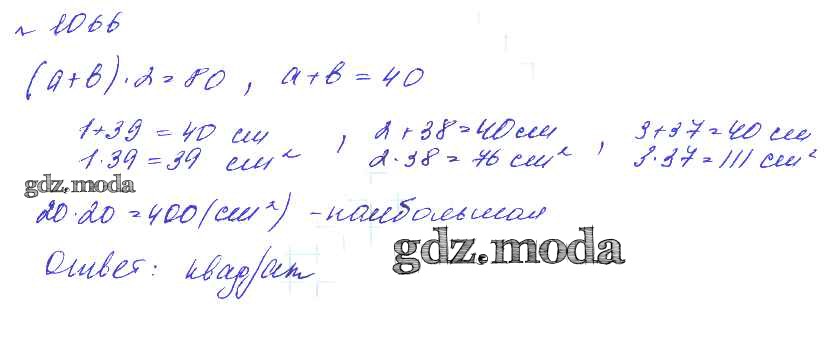 № 1066
(а+в)·2=80, а+в=40
1+39=40 см, 2+38=40 см, 3+37=40 см
1·39=39 см², 2·38=76 см², 3·37=111 см²
gdz.moda
20·20=400(см²) - наибольшая
gdz.moda
Ответ: квадрат